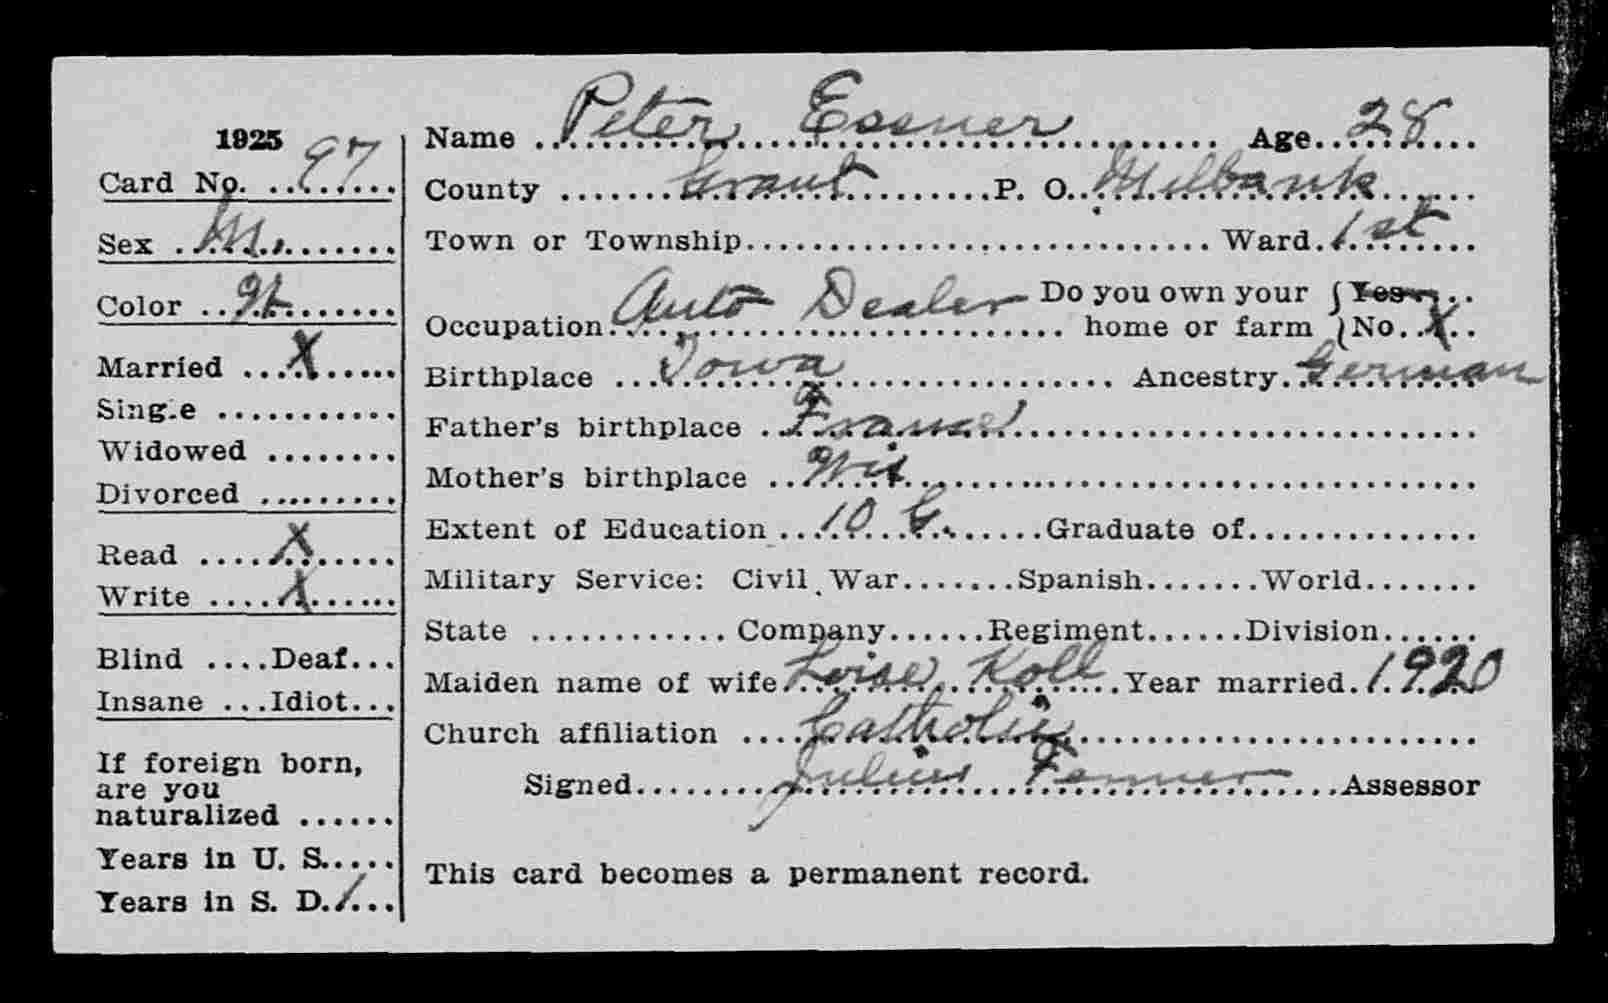 1925
Card No. 97
Sex M.
Color W.
Married X
Single
Widowed
Divorced
Read X
Write X
Blind ....Deaf...
Insane ...Idiot...
If foreign born,
are you
naturalized ......
Years in U. S.....
Years in S. D. 1
Name Peter Essner Age 28
County Grant P. O. Milbank
Town or Township Ward 1st
Occupation Auto Dealer Do you own your home or farm {Yes {No X
Birthplace Iowa Ancestry German
Father's birthplace France
Mother's birthplace Wis
Extent of Education 10 G. Graduate of
Military Service: Civil War.......Spanish.......World.......
State ............ Company......Regiment......Division......
Maiden name of wife Loise Koll Year married. 1920
Church affiliation Catholic
Signed Julius Assessor
This card becomes a permanent record.